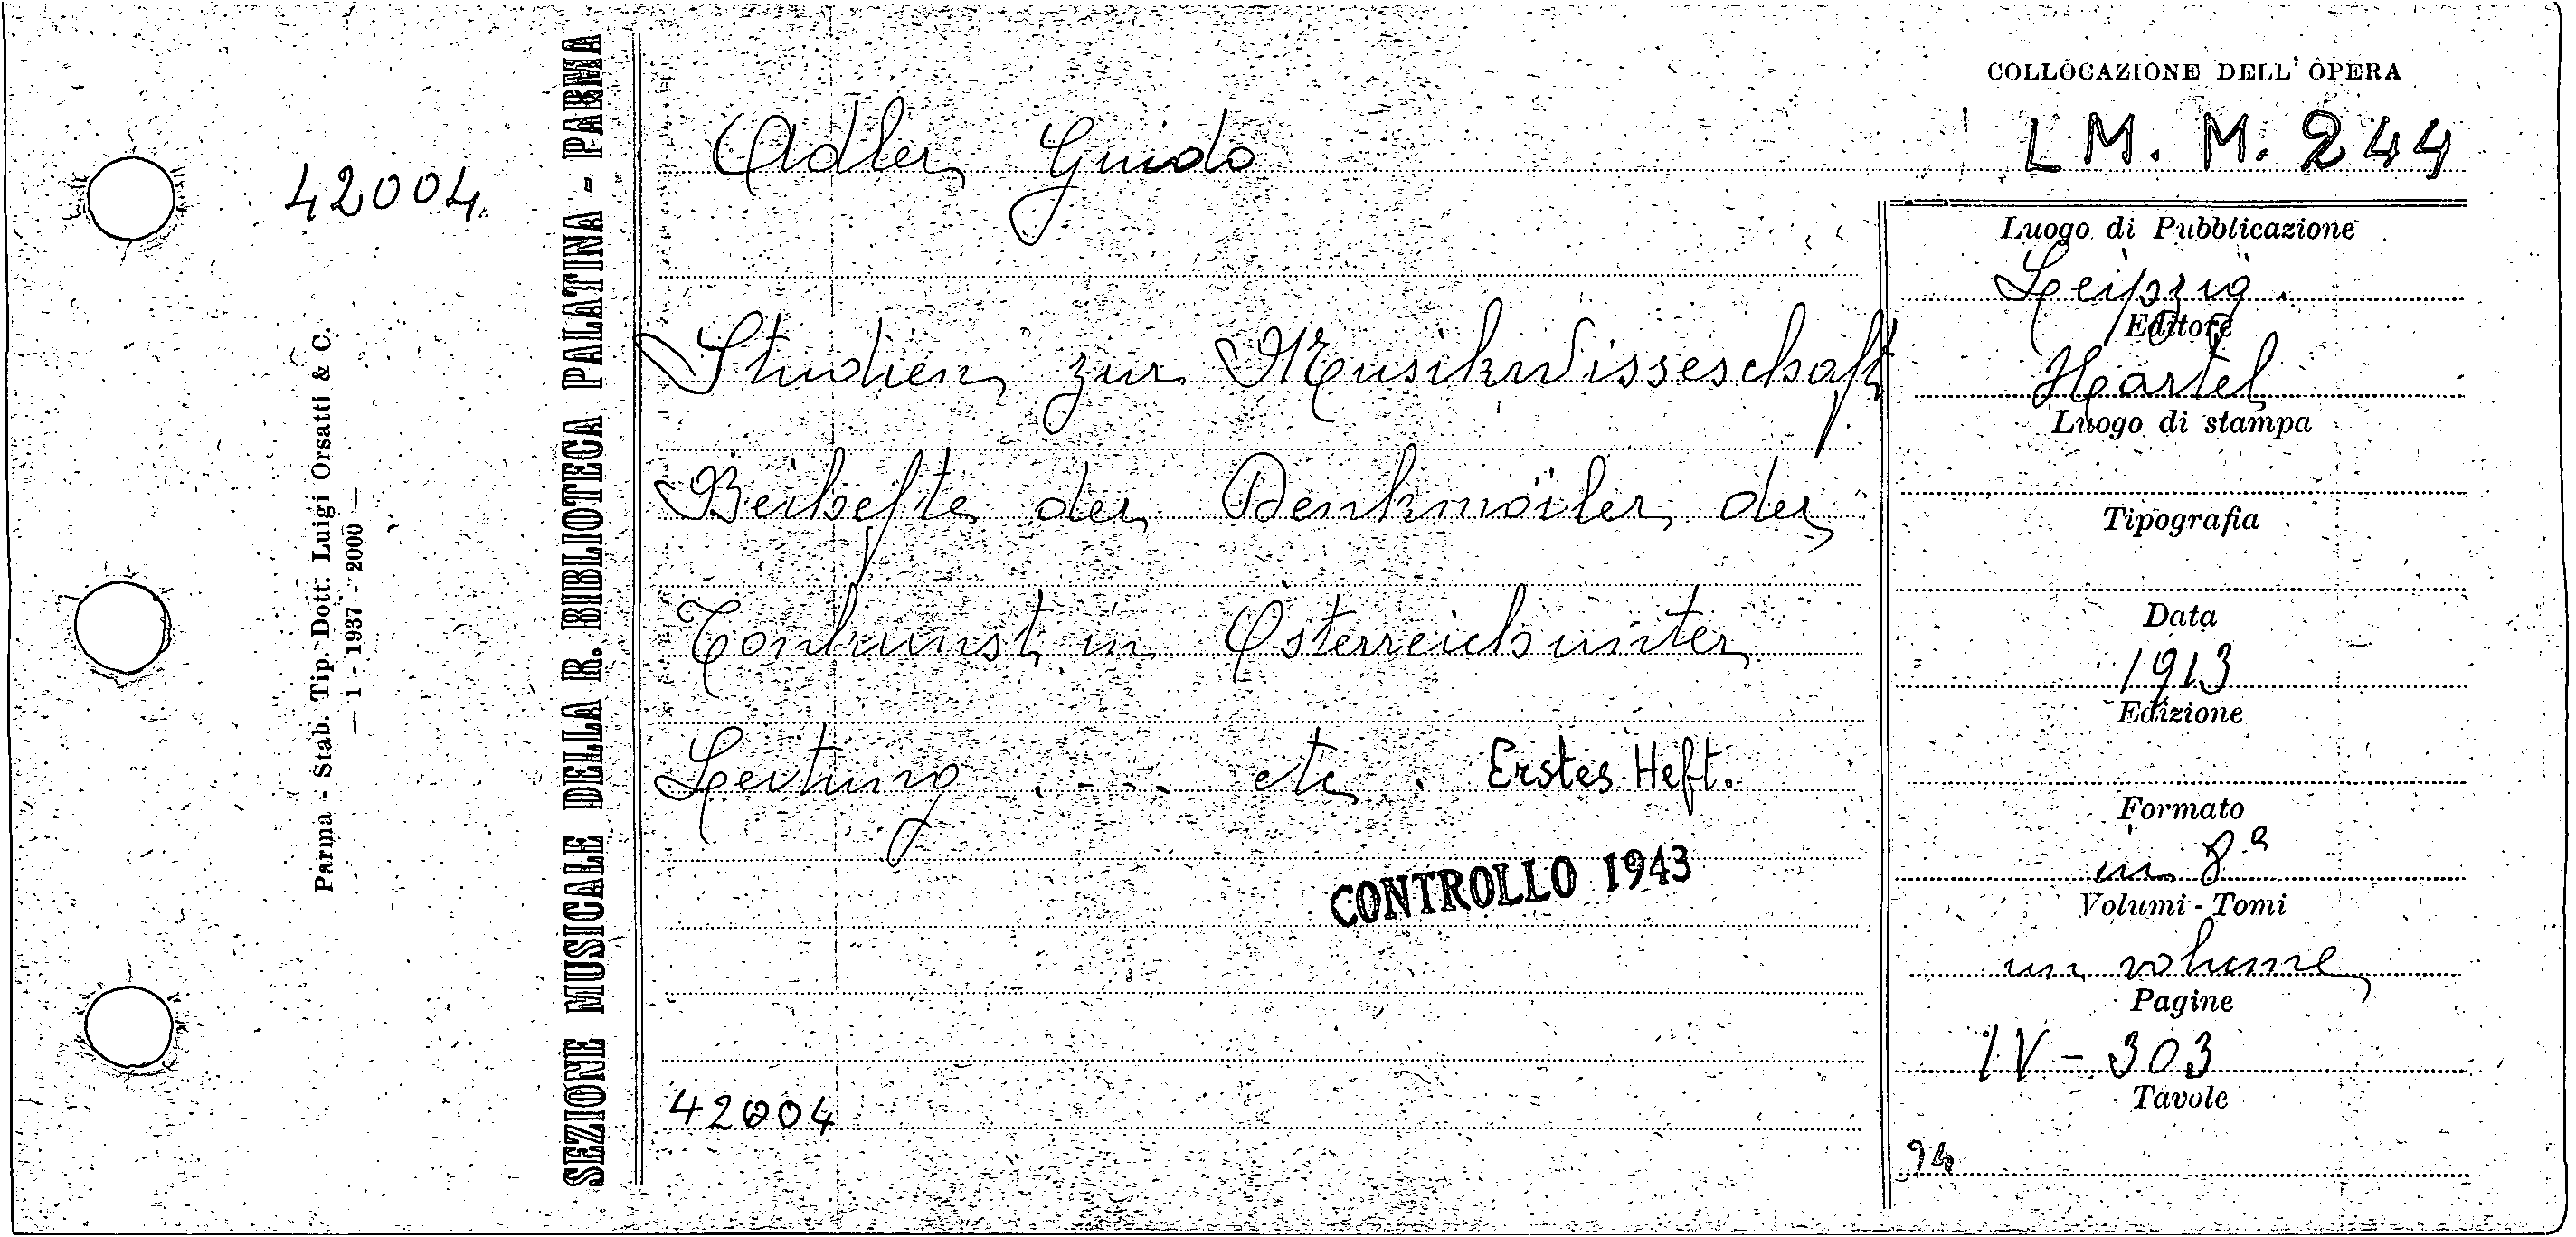 42004
Parma - Stab. Tip. Dott. Luigi Orsatti & C.
— 1 - 1937 - 2000 —
SEZIONE MUSICALE DELLA R. BIBLIOTECA PALATINA - PARMA
Adler Guido
Studien zur Musikwisseschaft
Beihefte der Denkmäler der
Tonkunst in Österreich unter
Leitung . - - . etc . Erstes Heft.
CONTROLLO 1943
42004
COLLOCAZIONE DELL' OPERA
L M. M. 244
Luogo di Pubblicazione
Leipzig.
Editore
Härtel
Luogo di stampa
Tipografia
Data
1913
Edizione
Formato
in 8º
Volumi - Tomi
un volume
Pagine
IV - 303
Tavole